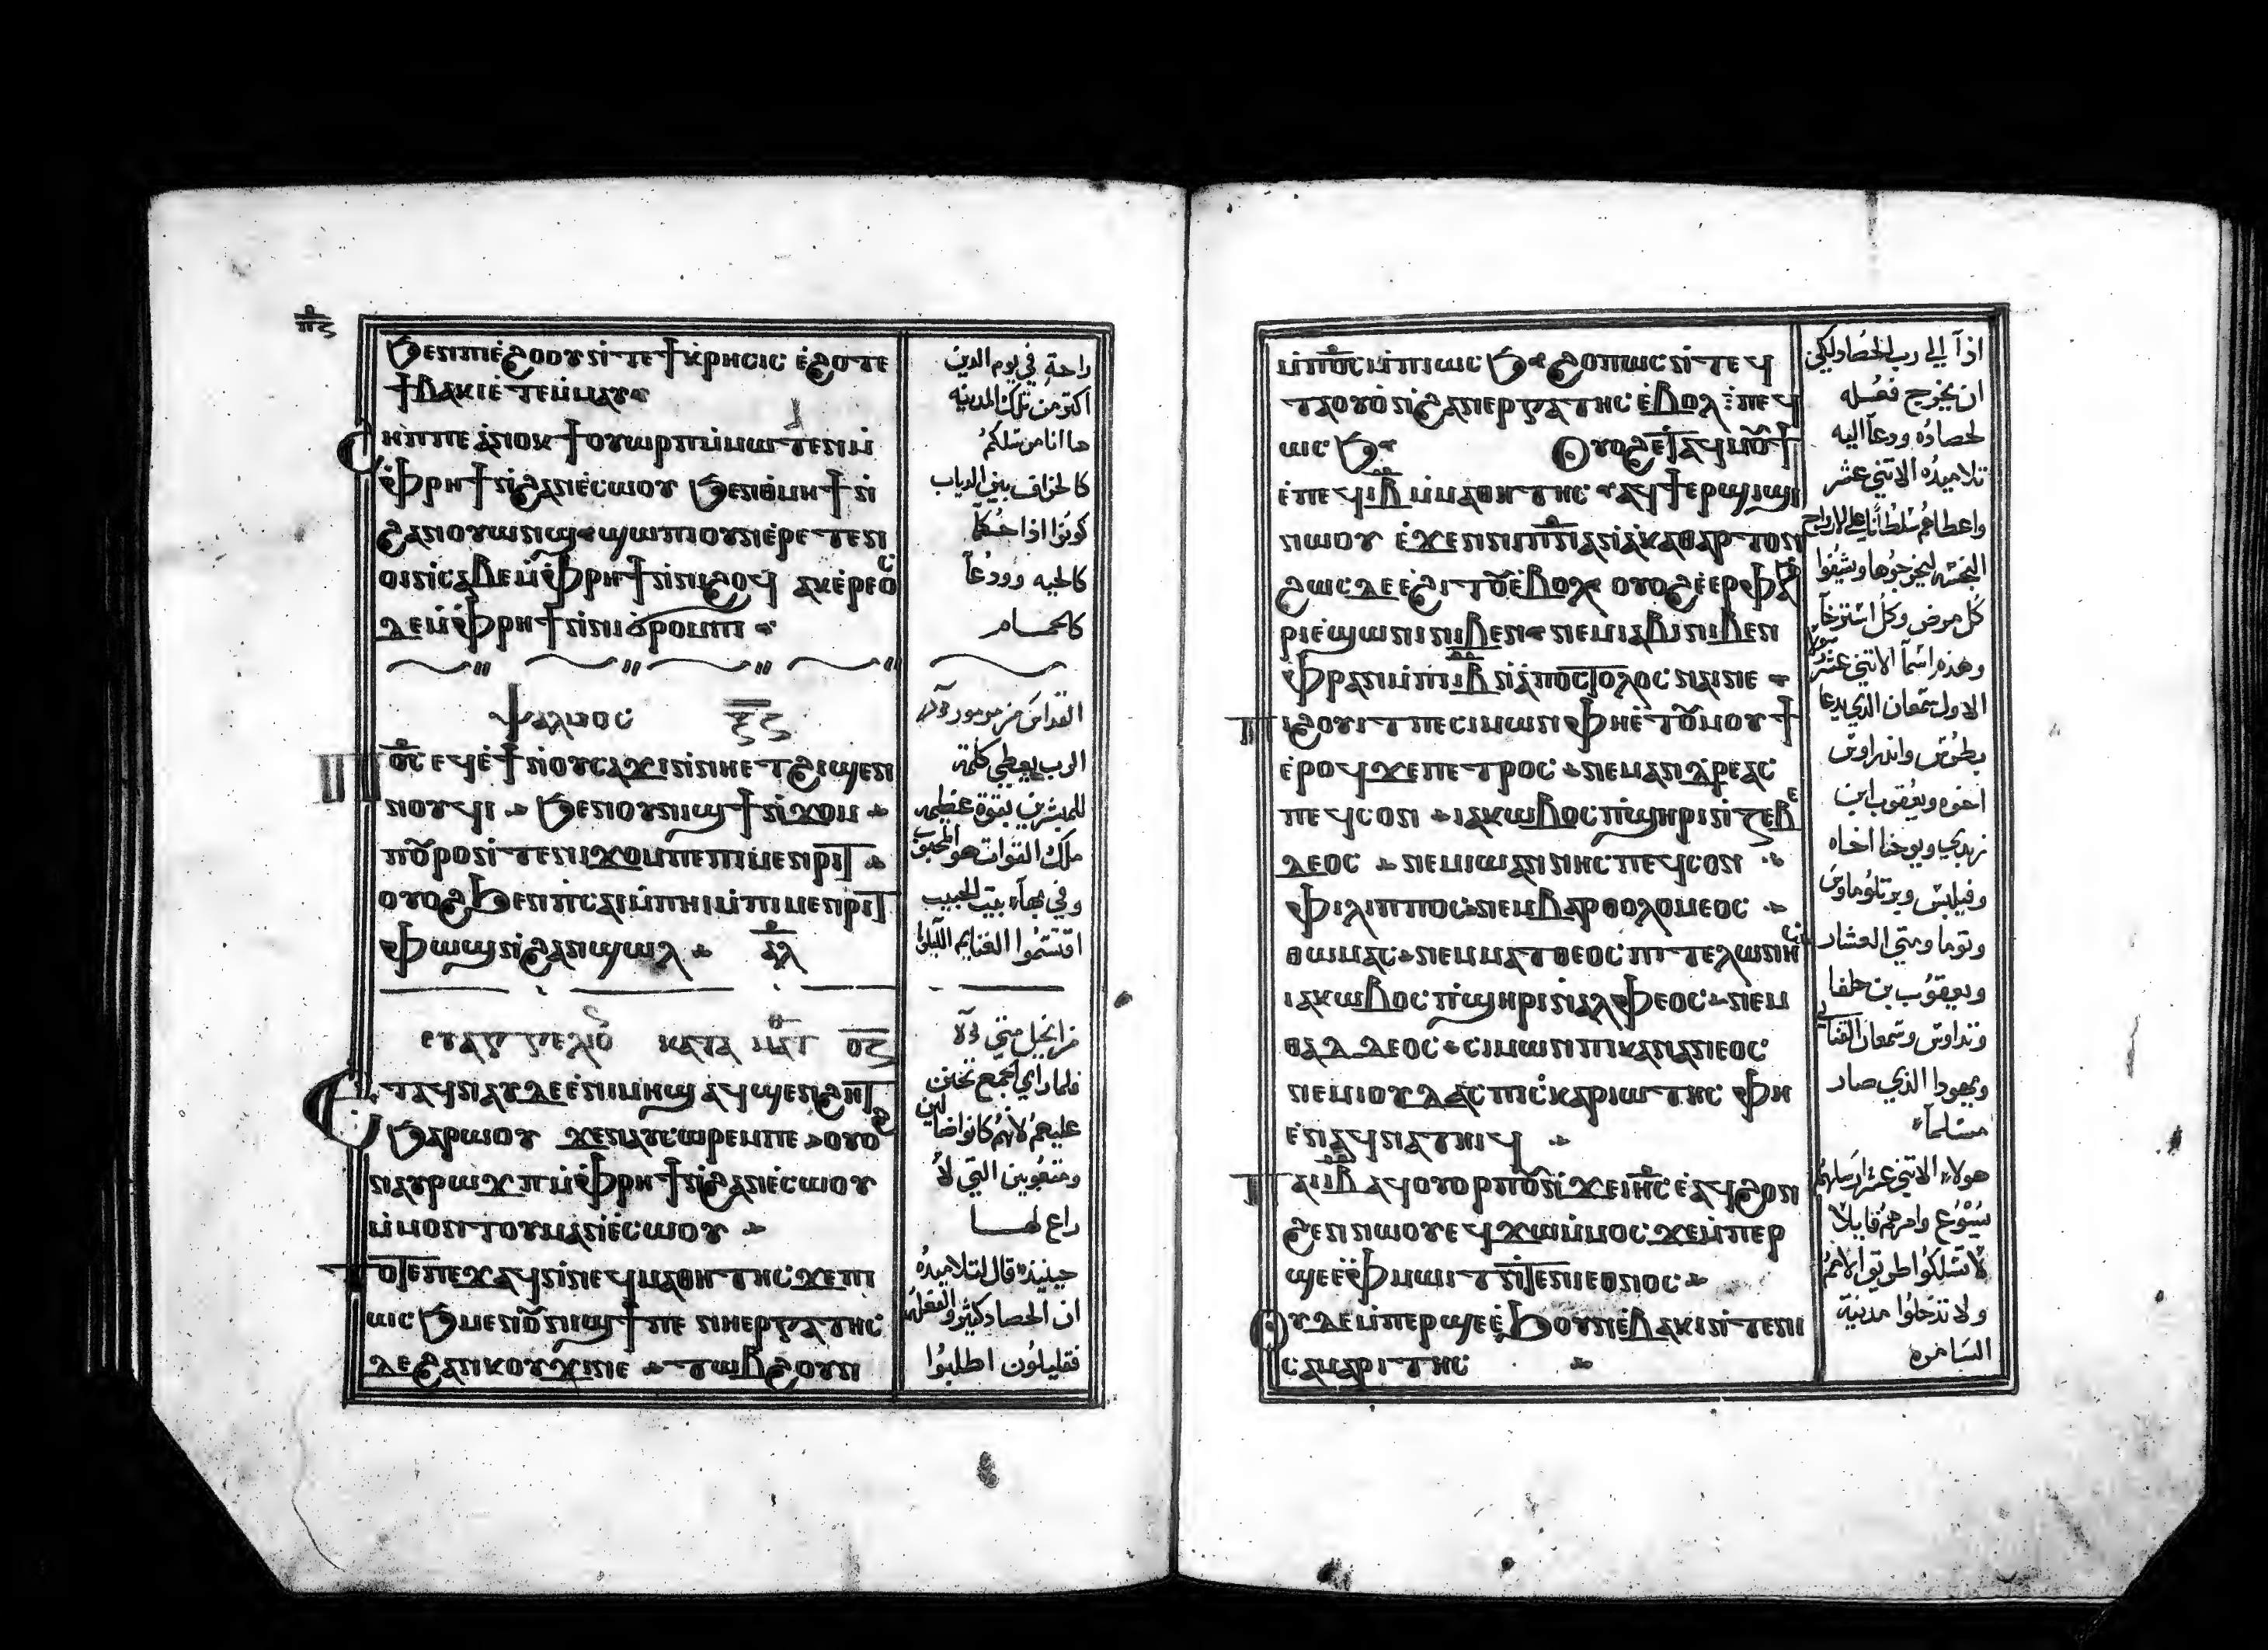 ⲡ̅ⲋ̅
ϧⲉⲛⲡⲓⲉ̀ϩⲟⲟⲩⲛ̀ⲧⲉϯⲕⲣⲏⲥⲓⲥ ⲉ̀ϩⲟⲧⲉ
ϯⲃⲁⲕⲓⲉ̀ⲧⲉⲙ̀ⲙⲁⲩ
ϩⲏⲡⲡⲉ ⲁ̀ⲛⲟⲕ ϯⲟⲩⲱⲣⲡⲙ̀ⲙⲱⲧⲉⲛⲙ̀
ⲫ̀ⲣⲏϯⲛ̀ϩⲁⲛⲉ̀ⲥⲱⲟⲩ ϧⲉⲛⲑⲙⲏϯⲛ̀
ϩⲁⲛⲟⲩⲱⲛϣ ϣⲱⲡⲓⲟⲩⲛⲉ̀ⲣⲉⲧⲉⲛ
ⲟⲓⲛ̀ⲥⲁⲃⲉⲙ̀ⲫ̀ⲣⲏϯⲛ̀ⲛⲓϩⲟϥ ⲁⲕⲉ̀ⲣⲉⲟⲥ
ⲇⲉⲙ̀ⲫ̀ⲣⲏϯⲛ̀ⲛⲓϭⲣⲟⲙⲡⲓ
ⲯⲁⲗⲙⲟⲥ ⲝ̅ⲍ̅
ⲡⲟ̅ⲥ̅ ⲉϥⲉ̀ϯⲛ̀ⲟⲩⲥⲁϫⲓⲛ̀ⲛⲏⲉⲧϩⲓϣⲉⲛ
ⲛⲟⲩϥⲓ ϧⲉⲛⲟⲩⲛⲓϣϯⲛ̀ϫⲟⲙ
ⲡⲟⲩⲣⲟⲛ̀ⲧⲉⲛⲓϫⲟⲙⲡⲉⲡⲓⲙⲉⲛⲣⲓⲧ
ⲟⲩⲟϩϧⲉⲛⲡⲥⲁⲓⲙ̀ⲡⲏⲓⲙ̀ⲡⲓⲙⲉⲛⲣⲓⲧ
ⲫⲱϣⲛ̀ϩⲁⲛϣⲱⲗ ⲁ̅ⲗ̅
ⲉⲩⲁⲅⲅⲉⲗⲓⲟ ⲕⲁⲧⲁ ⲙⲁⲧ ⲟ̅ⲍ̅
ⲉⲧⲁϥⲛⲁⲩⲇⲉⲉ̀ⲛⲓⲙⲏϣ ⲁϥϣⲉⲛϩⲏⲧ
ϧⲁⲣⲱⲟⲩ ϫⲉⲛⲁⲩⲥⲱⲣⲉⲙⲡⲉ ⲟⲩⲟϩ
ⲛⲁⲩⲣⲱϫⲡⲙ̀ⲫ̀ⲣⲏϯⲛ̀ϩⲁⲛⲉ̀ⲥⲱⲟⲩ
ⲙ̀ⲙⲟⲛⲧⲟⲩⲙⲁⲛⲉ̀ⲥⲱⲟⲩ
ⲧⲟⲧⲉⲡⲉϫⲁϥⲛ̀ⲛⲉϥⲙⲁⲑⲏⲧⲏⲥ ϫⲉⲡⲓ
ⲱⲥϧ ⲙⲉⲛⲟⲩⲛⲓϣϯⲡⲉ ⲛⲓⲉⲣⲅⲁⲧⲏⲥ
ⲇⲉϩⲁⲛⲕⲟⲩϫⲓⲛⲉ ⲧⲱⲃϩⲟⲩⲛ
راحة في يوم الدين
اكتر من تلك المدينه
ها انا مرسلكم
كالخراف بين الدياب
كونوا اذا حكماً
كالحيه وودعاً
كالحمام
القداس مزمور
الرب يعطي كلمة
للمبشرين بقوة عظيمه
ملك القوات هو المحبوب
وفي بهاء بيت الحبيب
اقتسموا الغنايم الليلويا
من انجيل متي
فلما راي الجمع تحنن
عليهم لانهم كانوا ضالين
ومتعوبين التي لا
راع لها
حينيذ قال لتلاميذه
ان الحصاد كثير والفعله
فقليلون اطلبوا
ⲙ̀ⲡⲟ̅ⲥ̅ⲙ̀ⲡⲓⲱⲥϧ ϩⲟⲡⲱⲥⲛ̀ⲧⲉϥ
ⲧⲁⲟⲩⲟ̀ⲛ̀ϩⲁⲛⲉⲣⲅⲁⲧⲏⲥ ⲉ̀ⲃⲟⲗ ⲉ̀ⲡⲉϥ
ⲱⲥϧ ⲟⲩⲟϩⲉⲧⲁϥⲙⲟⲩϯ
ⲉ̀ⲡⲉϥⲓ̅ⲃ̅ ⲙ̀ⲙⲁⲑⲏⲧⲏⲥ ⲁϥϯⲉⲣϣⲓϣⲓ
ⲛⲱⲟⲩ ⲉ̀ϫⲉⲛⲛⲓⲡ̅ⲛ̅ⲁ̅ⲛ̀ⲁ̀ⲕⲁⲑⲁⲣⲧⲟⲛ
ϩⲱⲥⲇⲉ ⲉ̀ϩⲓⲧⲟⲩⲉ̀ⲃⲟⲗ ⲟⲩⲟϩⲉ̀ⲉⲣⲫⲁϧ
ⲣⲓⲉ̀ϣⲱⲛⲓⲛⲓⲃⲉⲛ ⲛⲉⲙⲓⲁⲃⲓⲛⲓⲃⲉⲛ
ⲫⲣⲁⲛⲙ̀ⲡⲓⲓ̅ⲃ̅ⲛ̀ⲁ̀ⲡⲟⲥⲧⲟⲗⲟⲥ ⲛⲁⲓⲛⲉ
ⲡⲓϩⲟⲩⲓⲧⲡⲉⲥⲓⲙⲱⲛ ⲫⲏⲉ̀ⲧⲟⲩⲙⲟⲩϯ
ⲉ̀ⲣⲟϥϫⲉⲡⲉⲧⲣⲟⲥ ⲛⲉⲙⲁⲛⲇⲣⲉⲁⲥ
ⲡⲉϥⲥⲟⲛ ⲓⲁⲕⲱⲃⲟⲥⲡϣⲏⲣⲓⲛ̀ⲍⲉⲃⲉ
ⲇⲉⲟⲥ ⲛⲉⲙⲓⲱⲁⲛⲛⲏⲥ ⲡⲉϥⲥⲟⲛ
ⲫⲓⲗⲓⲡⲡⲟⲥ ⲛⲉⲙⲃⲁⲣⲑⲟⲗⲟⲙⲉⲟⲥ
ⲑⲱⲙⲁⲥ ⲛⲉⲙⲙⲁⲧⲑⲉⲟⲥ ⲡⲓⲧⲉⲗⲱⲛⲏⲥ
ⲓⲁⲕⲱⲃⲟⲥⲡϣⲏⲣⲓⲛ̀ⲁⲗⲫⲉⲟⲥ ⲛⲉⲙ
ⲑⲁⲇⲇⲉⲟⲥ ⲥⲓⲙⲱⲛⲡⲓⲕⲁⲛⲁⲛⲉⲟⲥ
ⲛⲉⲙⲓⲟⲩⲇⲁⲥ ⲡⲓⲥⲕⲁⲣⲓⲱⲧⲏⲥ ⲫⲏ
ⲉ̀ⲛⲁϥⲛⲁⲧⲏⲓϥ
ⲡⲁⲓⲓ̅ⲃ̅ ⲁϥⲟⲩⲟⲣⲡⲟⲩⲛ̀ϫⲉⲓⲏ̅ⲥ̅ ⲉ̀ⲁϥϩⲟⲛ
ϩⲉⲛⲛⲱⲟⲩ ⲉϥϫⲱⲙ̀ⲙⲟⲥ ϫⲉⲙ̀ⲡⲉⲣ
ϣⲉⲉ̀ⲫⲙⲱⲓⲧⲛ̀ⲧⲉⲛⲓⲉⲑⲛⲟⲥ
ⲟⲩⲇⲉⲙ̀ⲡⲉⲣϣⲉⲉ̀ϧⲟⲩⲛⲉ̀ⲃⲁⲕⲓⲛ̀ⲧⲉⲛⲓ
ⲥⲁⲙⲁⲣⲓⲧⲏⲥ
اذاً الي رب الحصاد لكي
ان يخرج فعله
لحصاده ودعا اليه
تلاميذه الاثني عشر
واعطاهم سلطاناً علي الارواح
النجسه ليخرجوها ويشفوا
كل مرض وكل استرخاء
وهذه اسما الاثني عشر رسولاً
الاول سمعان الذي يدعا
بطرس واندراوس
اخوه ويعقوب ابن
زبدي ويوحنا اخاه
وفيلبس وبرتلوماوس
وتوما ومتي العشار
ويعقوب بن حلفا
وتداوس وسمعان القناني
ويهودا الذي صار
مسلماً
هولاء الاتني عشر ارسلهم
يسوع وامرهم قايلاً
لا تسلكوا طريق الامم
ولا تدخلوا مدينة
السامره